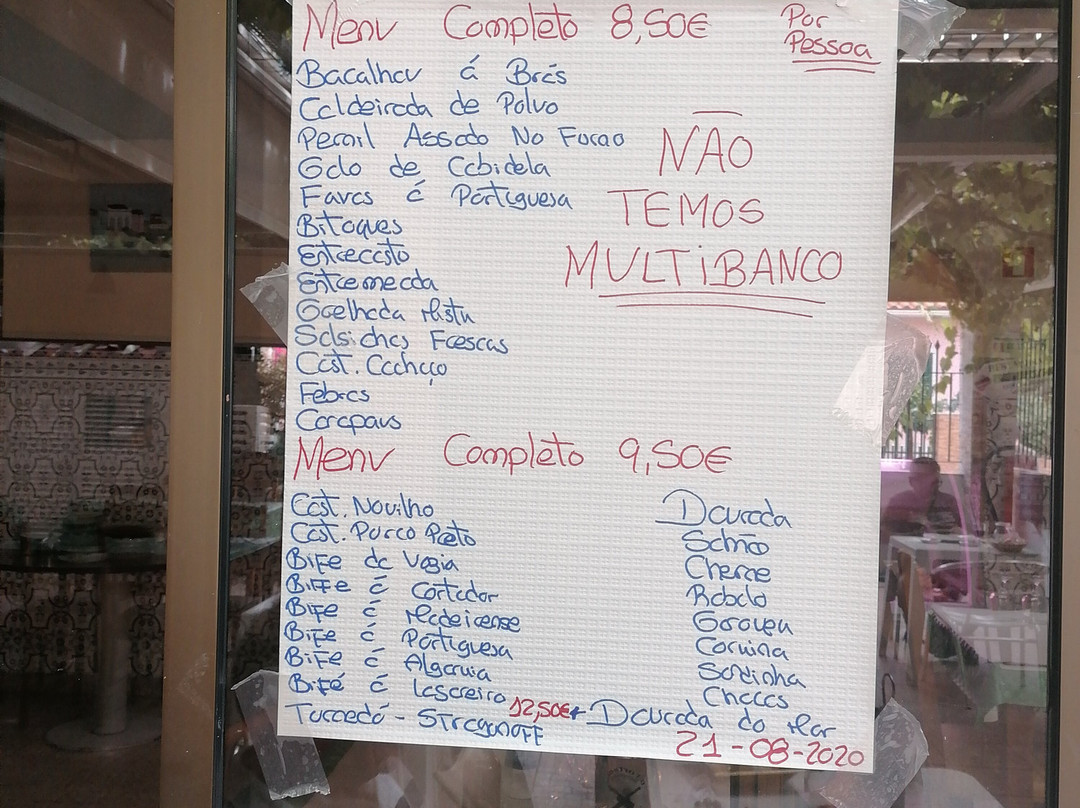 Menu Completo 8,50€ Por Pessoa
Bacalhau á Brás
Caldeirada de Polvo
Pernil Assado No Forno
Galo de Cabidela
Favas á Portuguesa
NÃO
TEMOS
MULTiBANCO
Bitoques
Entrecosto
Entremeada
Grelhada Mista
Salsichas Frescas
Cost. Cachaço
Febras
Carapaus
Menu Completo 9,50€
Cost. Novilho
Cost. Porco Preto
Bife da Vazia
Bife á Cortador
Bife á Madeirense
Bife á Portuguesa
Bife á Algarvia
Bifé á Lasareiro 12,50€
Turnedó - Strogonoff
Dourada
Salmão
Cherne
Robalo
Garoupa
Corvina
Sardinha
Chocos
Dourada do Mar
21-08-2020